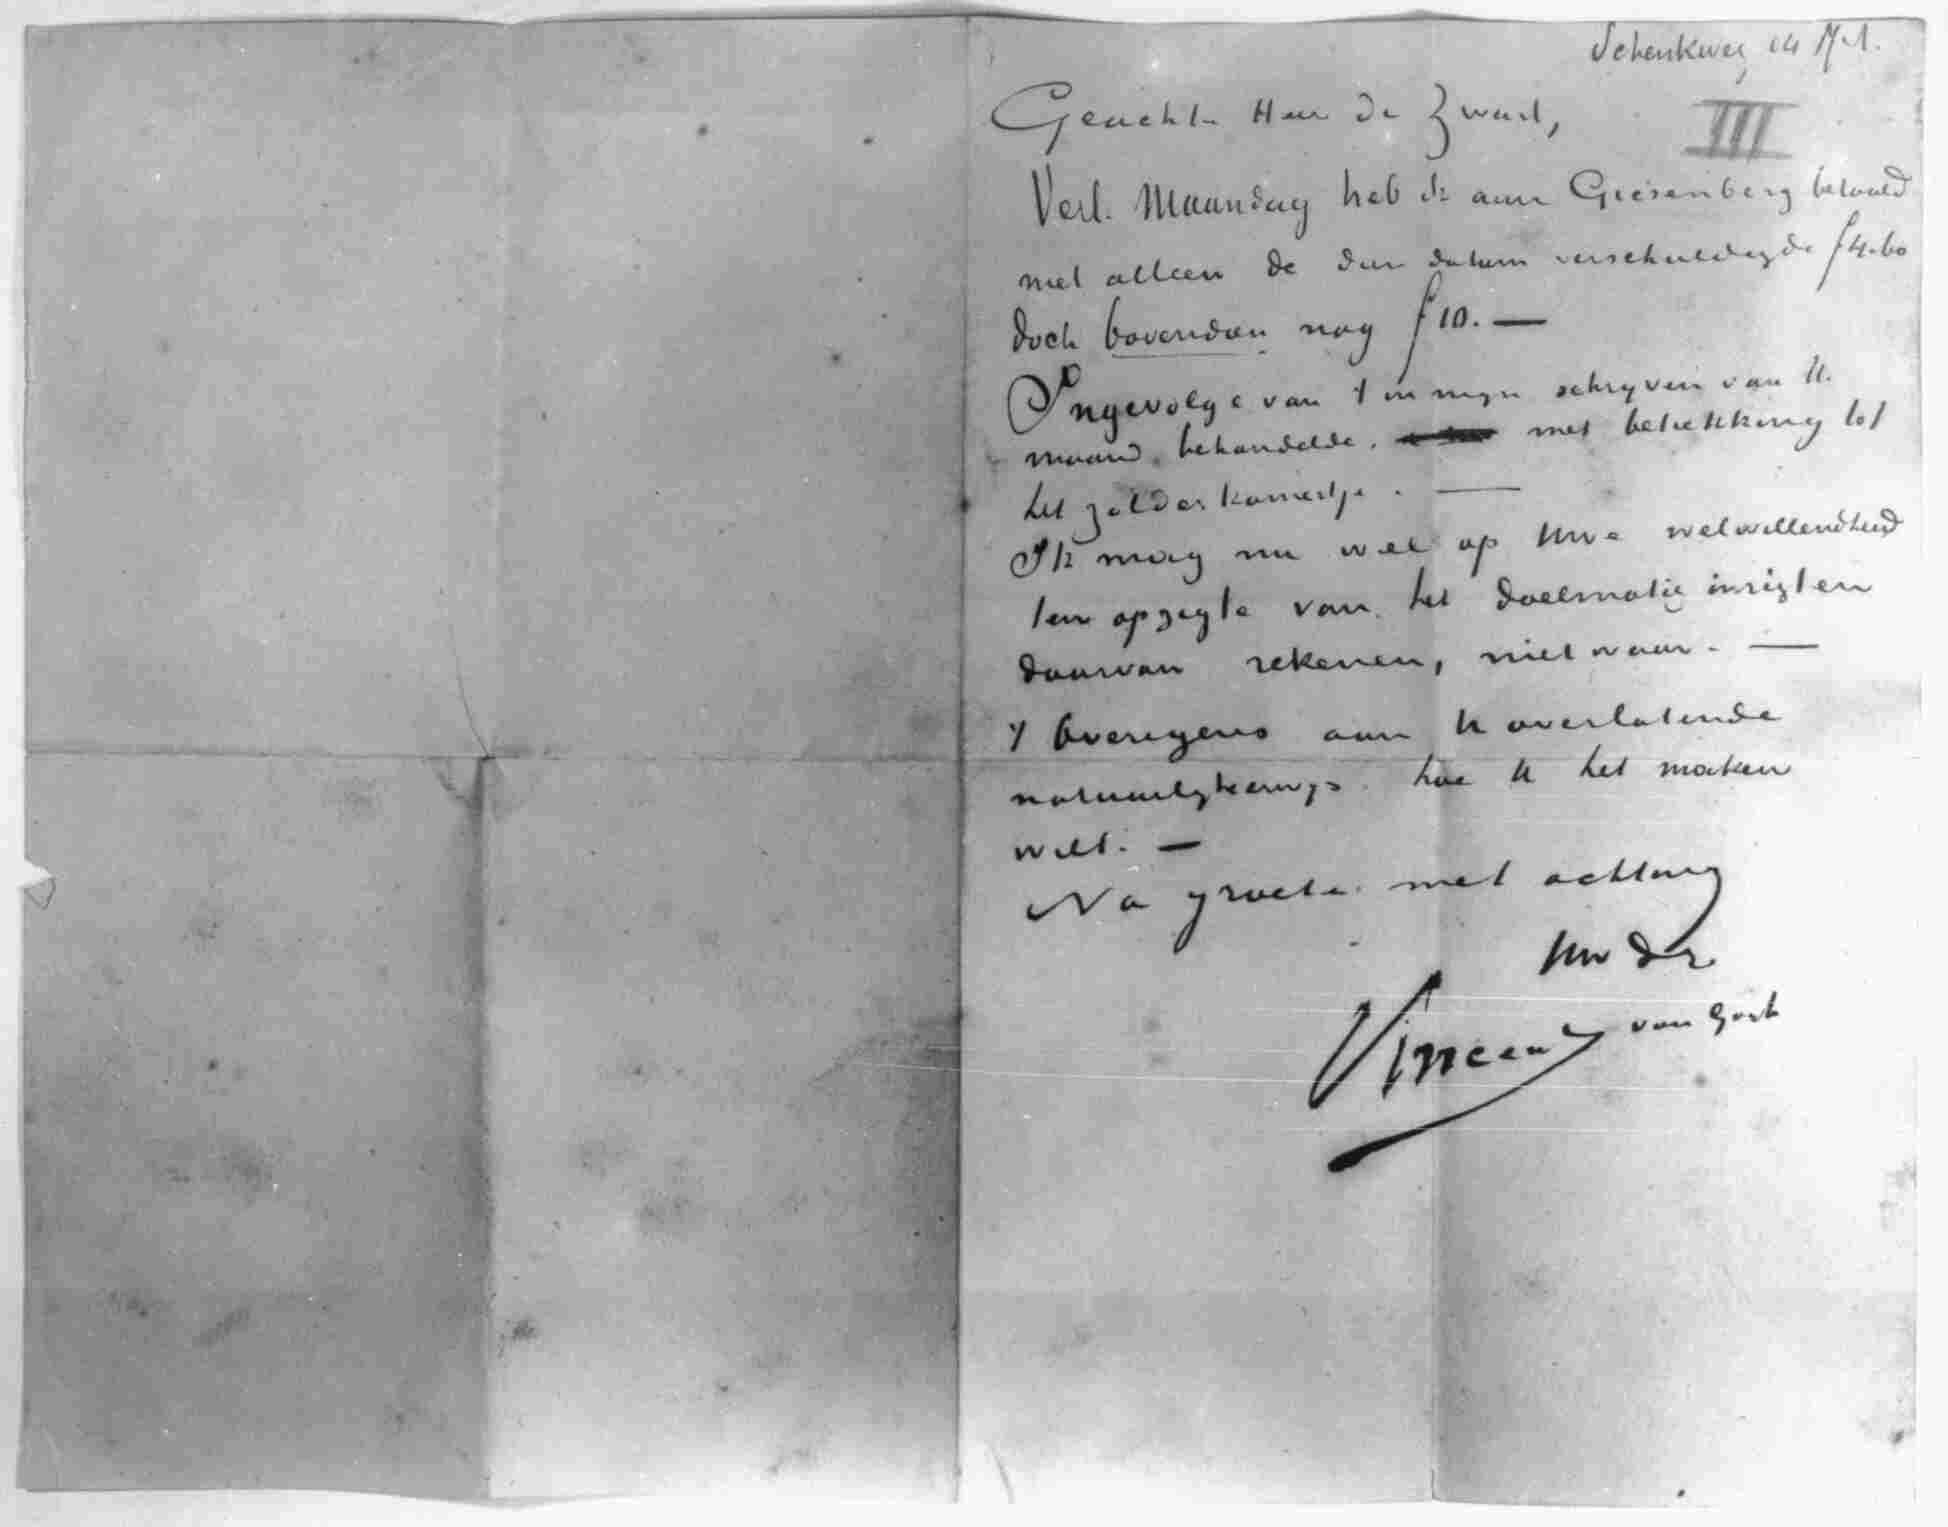 Schenkweg
III
Geachte Heer de Zwart,
Verl. Maandag heb ik aan Giesenberg betaald
niet alleen de dien datum verschuldigde f 4.60
doch bovendien nog f 10. —
Ingevolge van 't in mijn schrijven van U.
maand behandelde. met betrekking tot
het zolderkamertje. —
Ik mag nu wel op Uwe welwillendheid
ten opzigte van het doelmatig inrigten
daarvan rekenen, niet waar. —
't Overigens aan U overlatende
natuurlijkerwijs hoe U het maken
wilt. —
Na groete met achting
Uw dr
Vincent van Gogh